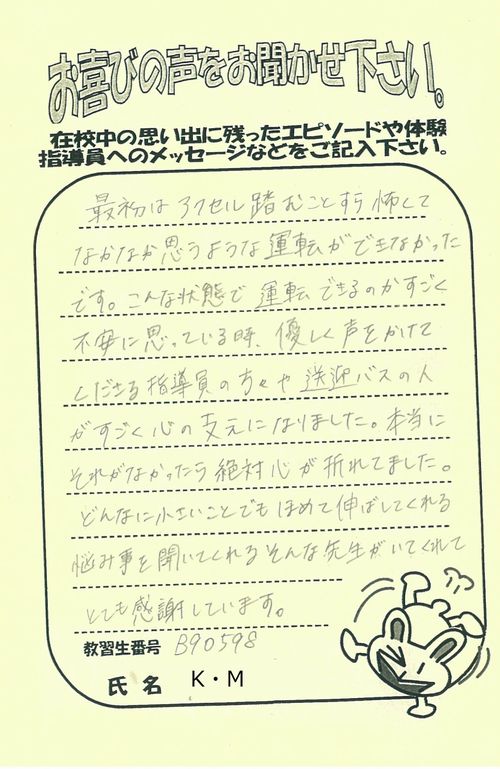 お喜びの声をお聞かせ下さい。
在校中の思い出に残ったエピソードや体験
指導員へのメッセージなどをご記入下さい。
最初はアクセル踏むことすら怖くて
なかなか思うような運転ができなかった
です。こんな状態で運転できるのかすごく
不安に思っている時、優しく声をかけて
くださる指導員の方々や送迎バスの人
がすごく心の支えになりました。本当に
それがなかったら絶対心が折れてました。
どんなに小さいことでもほめて伸ばしてくれる
悩み事を聞いてくれるそんな先生がいてくれて
とても感謝しています。
教習生番号 B90598
氏名 K・M